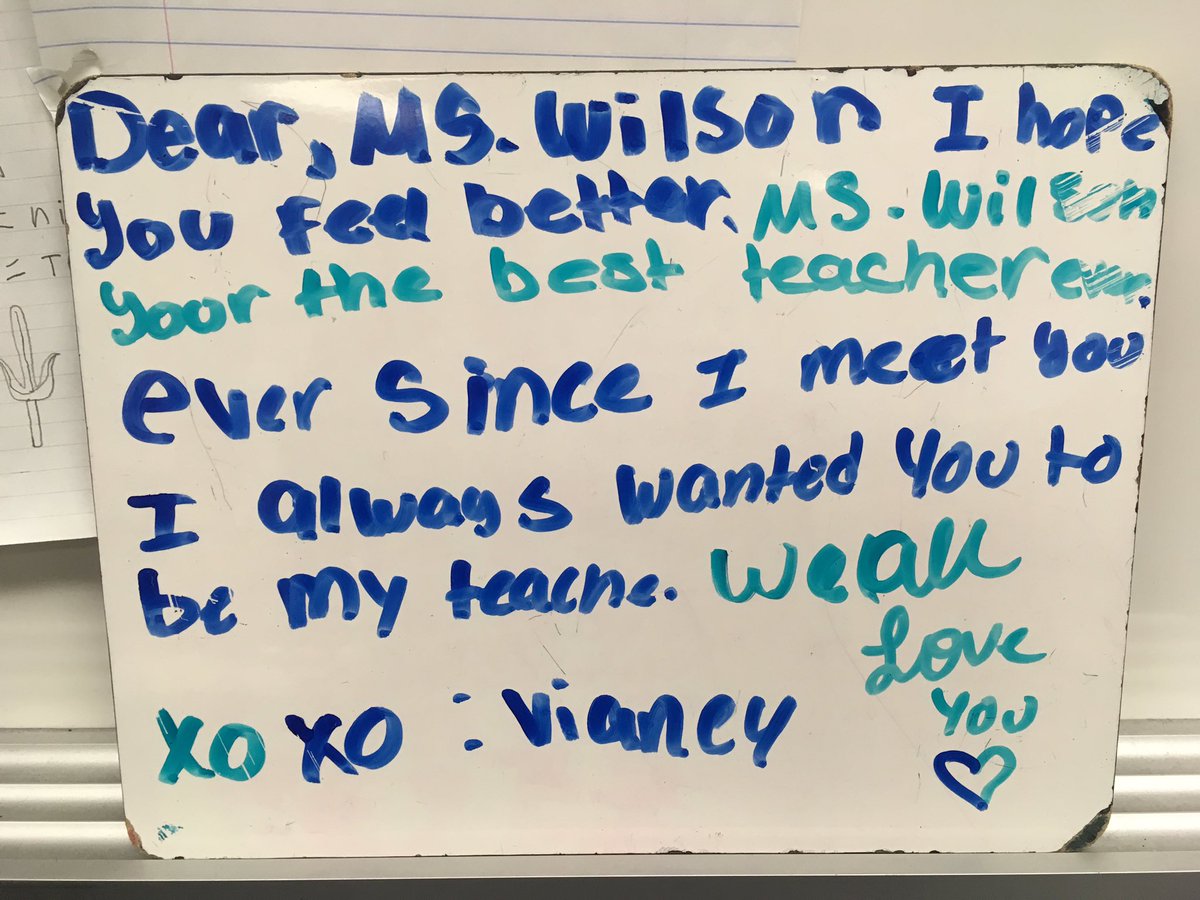 Dear, MS. Wilson I hope
you feel better. MS. Wilson
yoor the best teacher ever.
ever since I meet you
I always wanted you to
be my teache. We all
Love
You
xoxo : Viancy